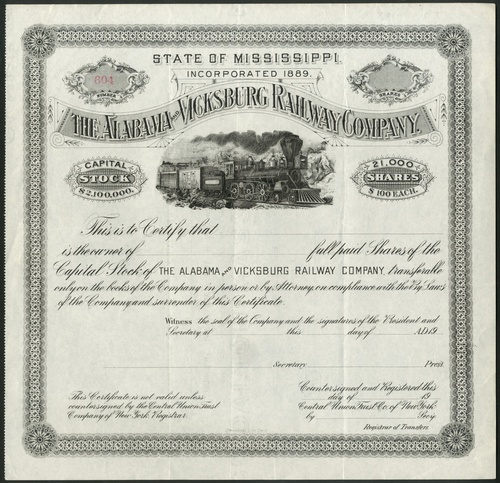 STATE OF MISSISSIPPI.
INCORPORATED 1889.
604
NUMBER
SHARES
THE ALABAMA AND VICKSBURG RAILWAY COMPANY.
CAPITAL
STOCK
$2,100,000.
21,000
SHARES
$100 EACH.
This is to Certify that
is the owner of full paid Shares of the
Capital Stock of THE ALABAMA AND VICKSBURG RAILWAY COMPANY, transferable
only on the books of the Company in person or by Attorney, on compliance with the By-Laws
of the Company and surrender of this Certificate.
Witness the seal of the Company and the signatures of the President and
Secretary at this day of A.D. 19
Secretary Prest.
This Certificate is not valid unless
countersigned by the Central Union Trust
Company of New York, Registrar.
Countersigned and Registered this
day of 19
Central Union Trust Co. of New York
by Secy.
Registrar of Transfers